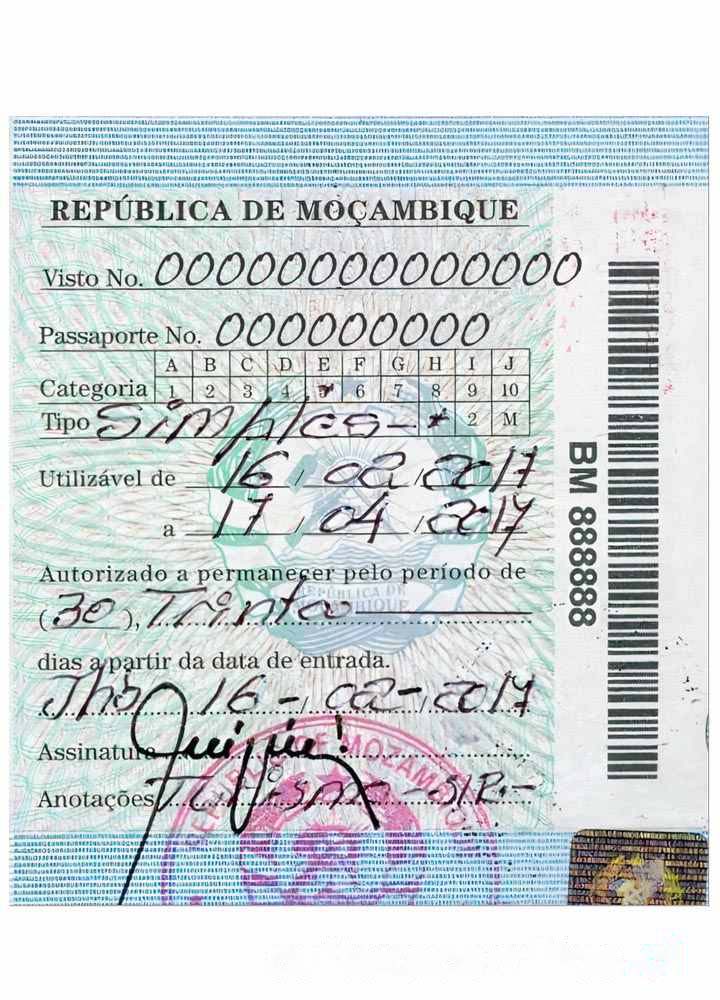 REPÚBLICA DE MOÇAMBIQUE
Visto No. 00000000000000
Passaporte No. 000000000
A B C D E F G H I J
Categoria 1 2 3 4 6 7 8 9 10
Tipo Simples - * 2 M
Utilizável de 16 / 02 / 2017
a 17 / 04 / 2017
Autorizado a permanecer pelo período de
(30), Trinta
dias a partir da data de entrada.
Jhb 16-02-2017
Assinatura
Anotações Turismo
BM 888888
REPÚBLICA DE